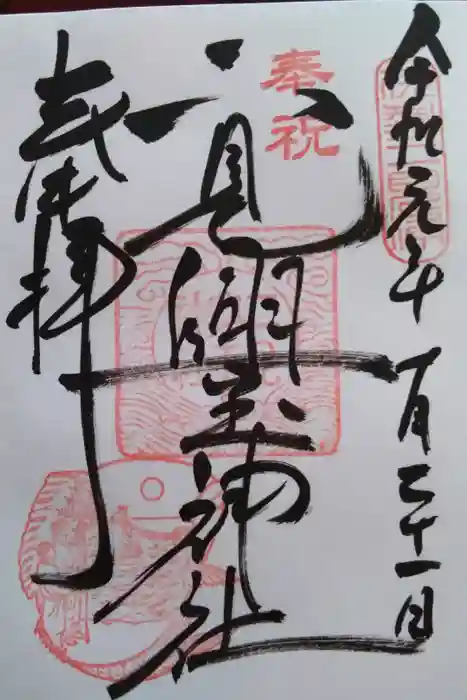 令和元年 月二十一日
奉祝
二見興玉神社
拝